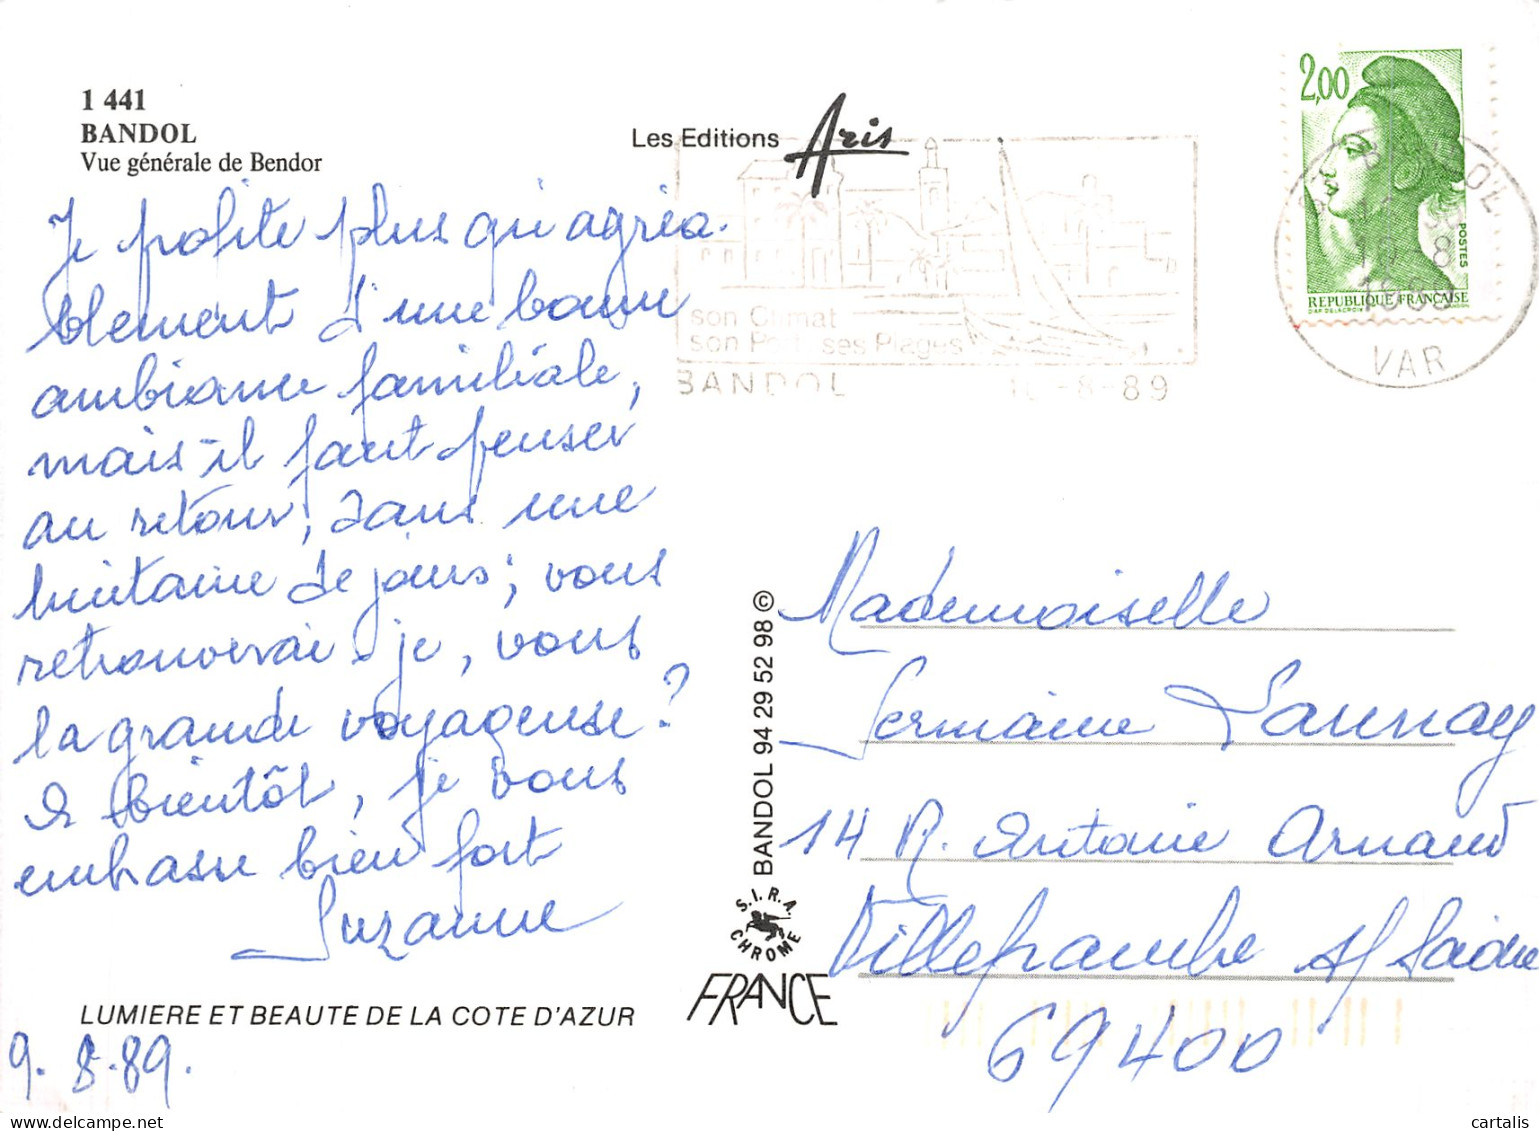 1 441
BANDOL
Vue générale de Bendor
Les Editions Aris
2,00
POSTES
REPUBLIQUE FRANÇAISE
D'AP. DELACROIX
VAR
son Climat
son Port ses Plages
BANDOL 10-8-89
Je profite plus qu'agréa-
blement d'une bonne
ambiance familiale,
mais il faut penser
au retour, dans une
huitaine de jours; vous
retrouverai-je, vous
la grande voyageuse?
A bientôt, je vous
embrasse bien fort
Suzanne
LUMIERE ET BEAUTE DE LA COTE D'AZUR
9.8.89.
BANDOL 94 29 52 98 ©
S.I.R.A.
CHROME
FRANCE
Mademoiselle
Germaine Launay
14 R. Antoine Arnaud
Villefranche s/ Saône
69400
cartalis